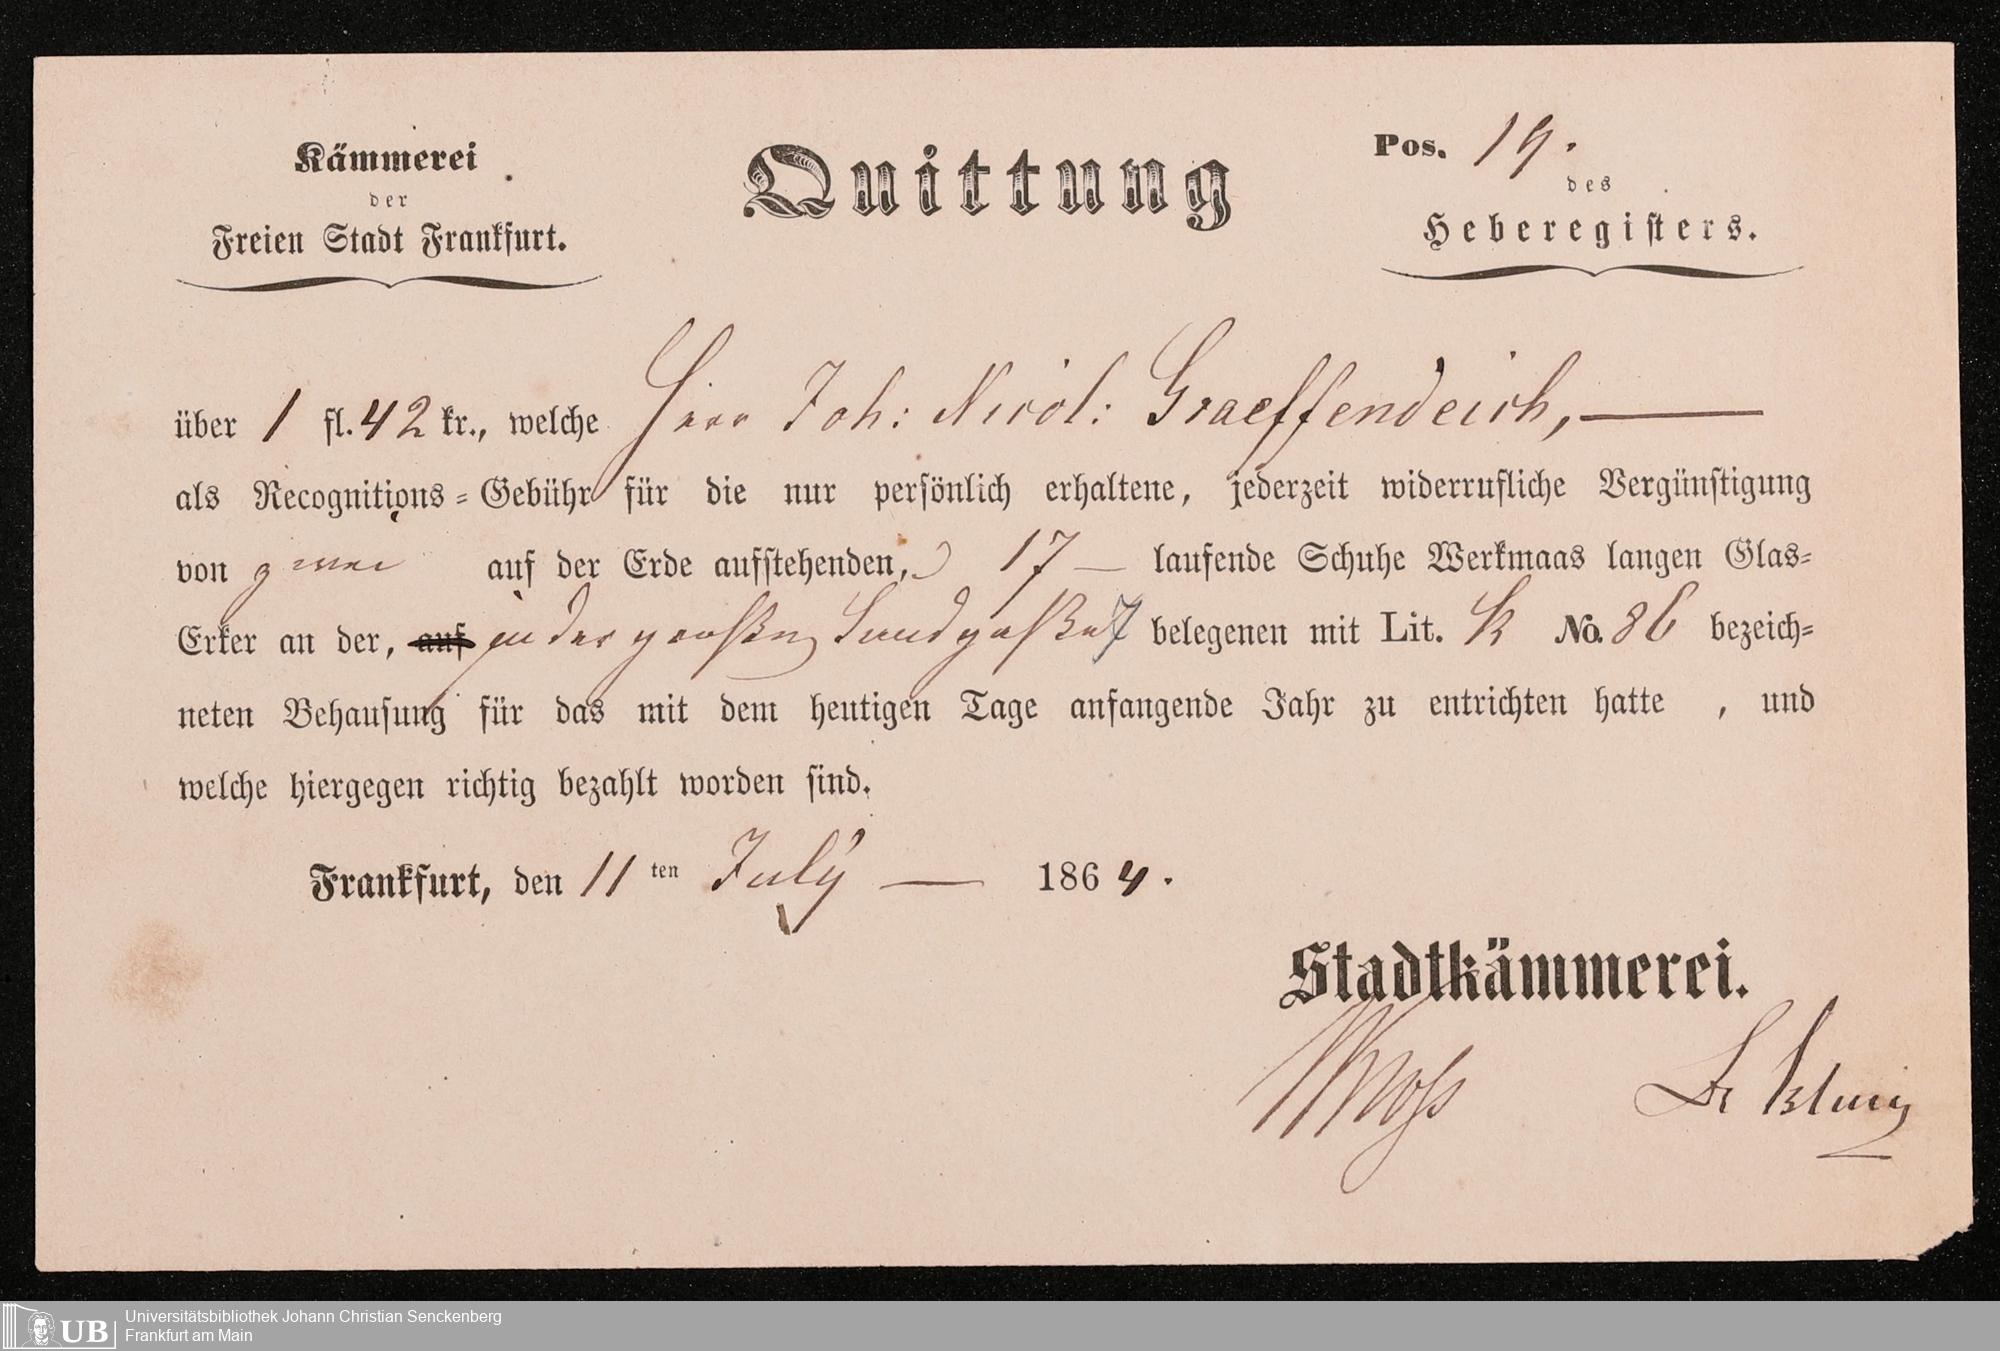 Kämmerei
der
Freien Stadt Frankfurt.
Quittung
Pos. 19.
des
Heberegisters.
über 1 fl. 42 kr., welche Herr Joh: Nicol: Graeffendeich, —
als Recognitions-Gebühr für die nur persönlich erhaltene, jederzeit widerrufliche Vergünstigung
von zwei auf der Erde aufstehenden, 17 — laufende Schuhe Werkmaas langen Glas-
Erker an der, auf in der großen Sandgaße 7 belegenen mit Lit. K No. 86 bezeich-
neten Behausung für das mit dem heutigen Tage anfangende Jahr zu entrichten hatte , und
welche hiergegen richtig bezahlt worden sind.
Frankfurt, den 11 ten July — 1864.
Stadtkämmerei.
Dr
UB Universitätsbibliothek Johann Christian Senckenberg
Frankfurt am Main